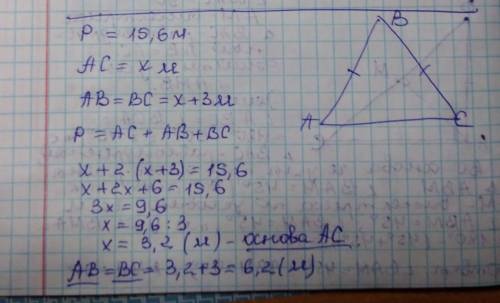 P = 15,6 м
AC = x м
AB = BC = x + 3 м
P = AC + AB + BC
x + 2 · (x + 3) = 15,6
x + 2x + 6 = 15,6
3x = 9,6
x = 9,6 : 3
x = 3,2 (м) - основа AC
AB = BC = 3,2 + 3 = 6,2 (м)
B
A
C